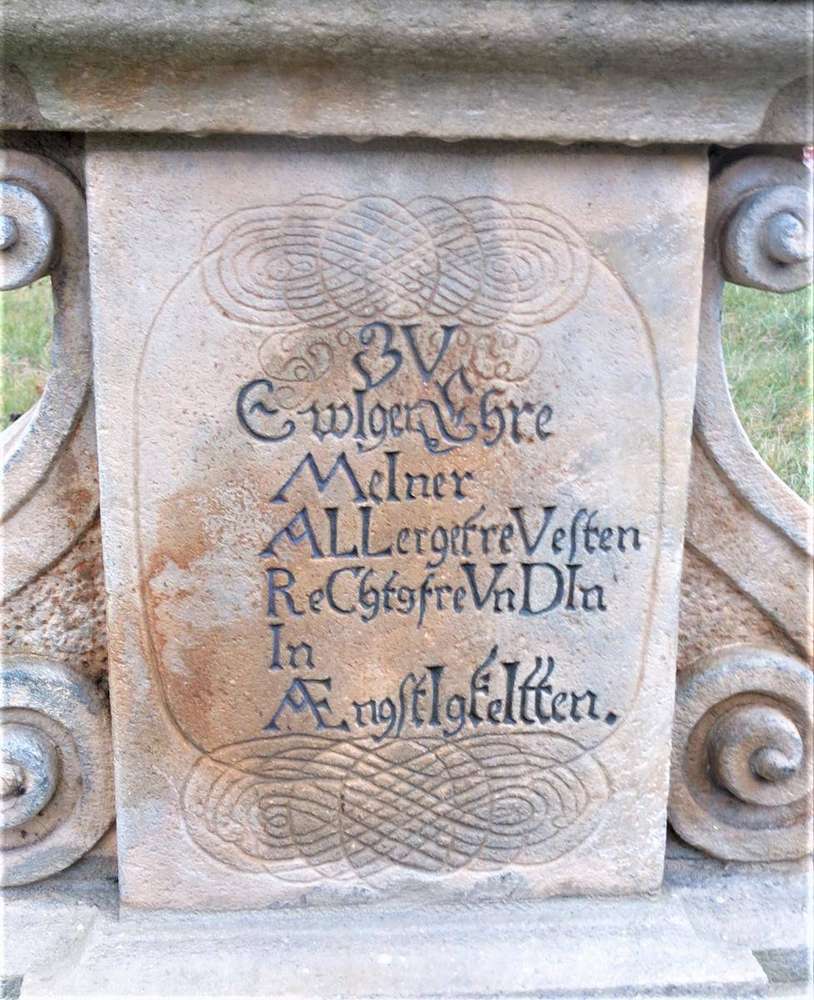 ZV
EwIger Ehre
MeIner
ALLergetreVesten
ReChtsfreVnDIn
In
ÆngstIgkeItten.